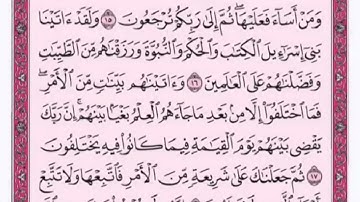 وَمَنْ أَسَاءَ فَعَلَيْهَا ثُمَّ إِلَىٰ رَبِّكُمْ تُرْجَعُونَ ١٥ وَلَقَدْ ءَاتَيْنَا
بَنِىٓ إِسْرَٰٓءِيلَ ٱلْكِتَٰبَ وَٱلْحُكْمَ وَٱلنُّبُوَّةَ وَرَزَقْنَٰهُم مِّنَ ٱلطَّيِّبَٰتِ
وَفَضَّلْنَٰهُمْ عَلَى ٱلْعَٰلَمِينَ ١٦ وَءَاتَيْنَٰهُم بَيِّنَٰتٍ مِّنَ ٱلْأَمْرِ
فَمَا ٱخْتَلَفُوٓا۟ إِلَّا مِنۢ بَعْدِ مَا جَآءَهُمُ ٱلْعِلْمُ بَغْيًۢا بَيْنَهُمْ إِنَّ رَبَّكَ
يَقْضِى بَيْنَهُمْ يَوْمَ ٱلْقِيَٰمَةِ فِيمَا كَانُوا۟ فِيهِ يَخْتَلِفُونَ
١٧ ثُمَّ جَعَلْنَٰكَ عَلَىٰ شَرِيعَةٍ مِّنَ ٱلْأَمْرِ فَٱتَّبِعْهَا وَلَا تَتَّبِعْ